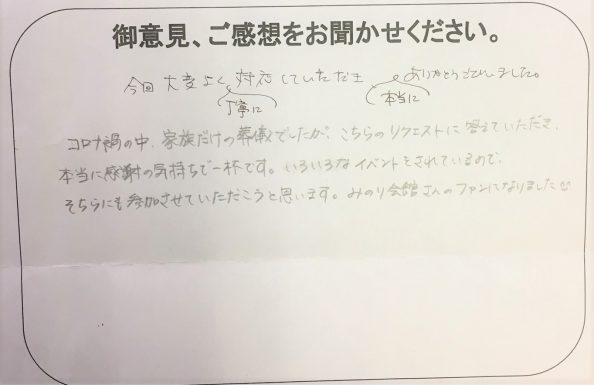 御意見、ご感想をお聞かせください。
今回 大変よく 対応していただき ありがとうございました。
丁寧に 本当に
コロナ禍の中、家族だけの葬儀でしたが、こちらのリクエストに答えていただき、
本当に感謝の気持ちで一杯です。いろいろなイベントをされているので、
そちらにも参加させていただこうと思います。みのり会館さんのファンになりました